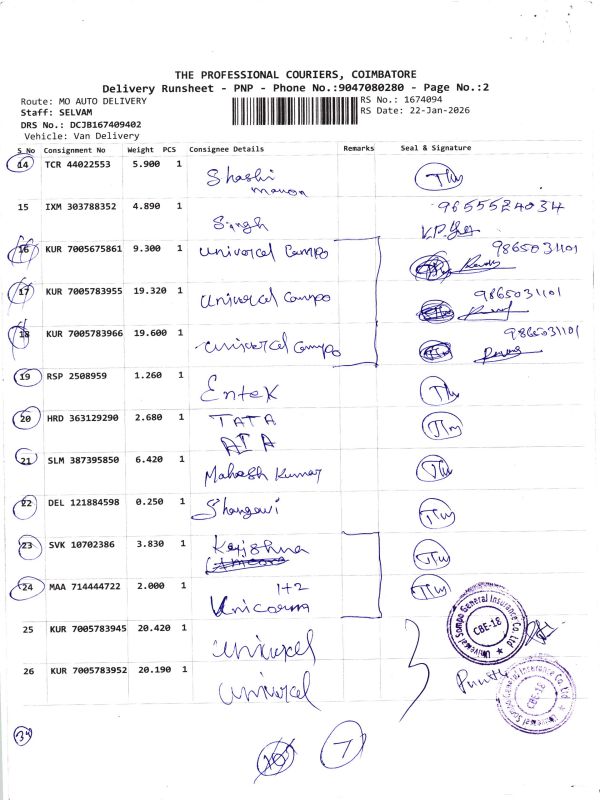 THE PROFESSIONAL COURIERS, COIMBATORE
Delivery Runsheet - PNP - Phone No.:9047080280 - Page No.:2
Route: MO AUTO DELIVERY RS No.: 1674094
Staff: SELVAM RS Date: 22-Jan-2026
DRS No.: DCJB167409402
Vehicle: Van Delivery
S No Consignment No Weight PCS Consignee Details Remarks Seal & Signature
14 TCR 44022553 5.900 1 Shashi
menon
15 IXM 303788352 4.890 1 Singh 9655524034
16 KUR 7005675861 9.300 1 Univorcel Compo 9865031101
17 KUR 7005783955 19.320 1 Univorcel Compo 9865031101
18 KUR 7005783966 19.600 1 Univercel Compo 9865031101
19 RSP 2508959 1.260 1 Entek
20 HRD 363129290 2.680 1 TATA
AIA
21 SLM 387395850 6.420 1 Mahesh Kumar
22 DEL 121884598 0.250 1
23 SVK 10702386 3.830 1
24 MAA 714444722 2.000 1 1+2
Universal Sompo General Insurance Co. Ltd
CBE-18
25 KUR 7005783945 20.420 1
26 KUR 7005783952 20.190 1 Univercel
Universal Sompo General Insurance Co. Ltd
CBE-18
7